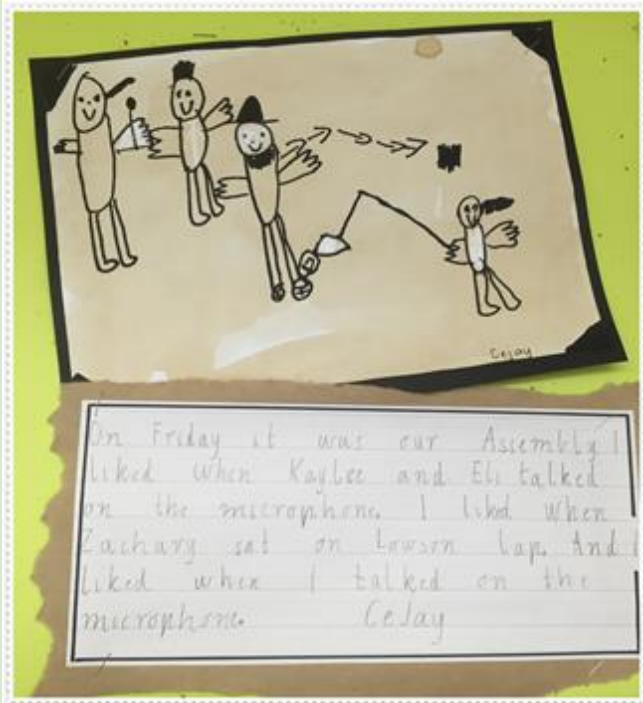 Cejay
On Friday it was our Assembly I
liked when Kaylee and Eli talked
on the microphone. I liked when
Zachary sat on Lawson lap. And i
liked when I talked on the
microphone. CeJay